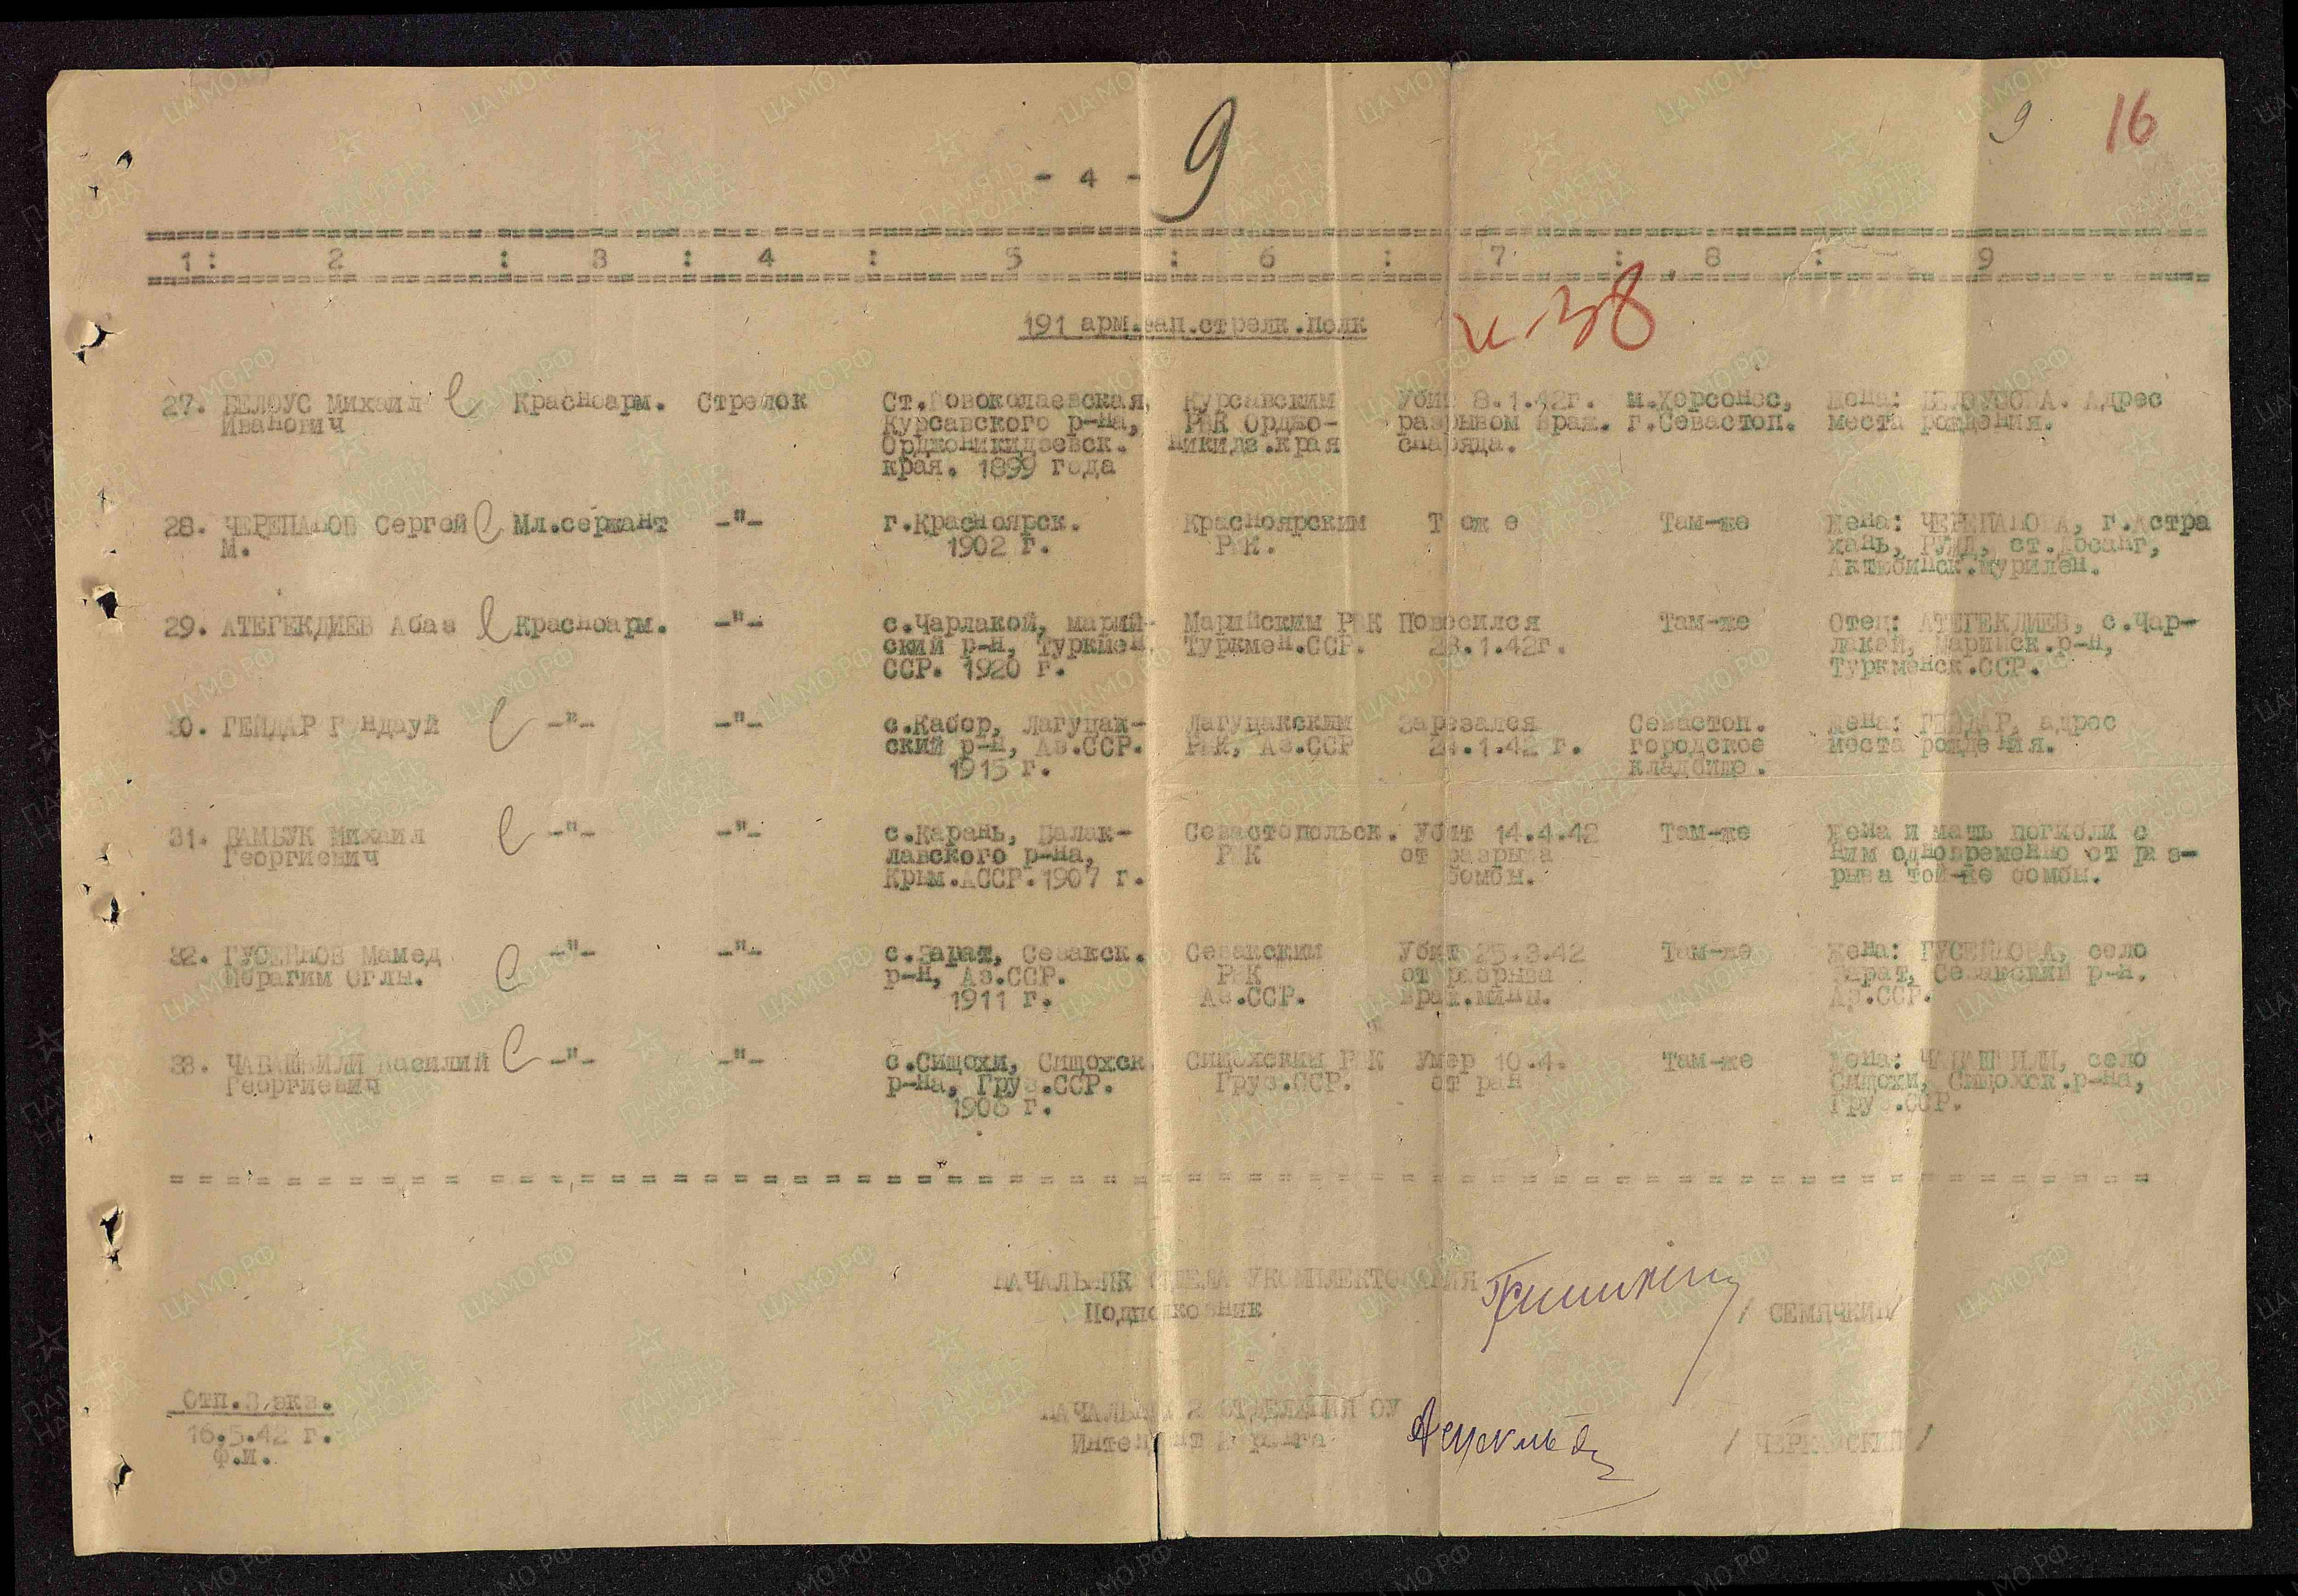 9 16
- 4 - 9
1 : 2 : 3 : 4 : 5 : 6 : 7 : 8 : 9
191 арм.зап.стрелк.полк
и-38
27. БЕЛОУС Михаил Красноарм. Стрелок Ст.Новоколаевская, Курсавским Убит 8.1.42г. м.Херсонес, Жена: БЕЛОУСОВА. Адрес
Иванович Курсавского р-на, РВК Орджо- разрывом враж. г.Севастоп. места рождения.
Орджоникидзевск. никидз.края снаряда.
края. 1899 года
28. ЧЕРЕПАНОВ Сергей Мл.сержант -"- г.Красноярск. Красноярским Тоже Там-же Жена: ЧЕРЕПАНОВА, г.Астра
М. 1902 г. РВК. хань, ст.
Актюбинск.
29. АТЕГЕКДИЕВ Абаз Красноарм. -"- с.Чарлакой, марий- Марийским РВК Повесился Там-же Отец: АТЕГЕКДИЕВ, с.Чар-
ский р-н, Туркмен. Туркмен.ССР. 23.1.42г. лакой, Марийск.р-н,
ССР. 1920 г. Туркменск.ССР.
30. ГЕЙДАР -"- -"- с.Кабер, Лагуцак- Лагуцакским Зарезался Севастоп. Жена: ГЕЙДАР, адрес
ский р-н, Аз.ССР. РВК, Аз.ССР 21.1.42 г. городское места рождения.
1915 г. кладбище.
31. САМБУК Михаил -"- -"- с.Карань, Балак- Севастопольск. Убит 14.4.42 Там-же Жена и мать погибли с
Георгиевич лавского р-на, РВК от разрыва ним одновременно от раз-
Крым.АССР.1907 г. бомбы. рыва той-же бомбы.
32. ГУСЕЙНОВ Мамед -"- -"- с.Зарат, Севакск. Севакским Убит 25.3.42 Там-же Жена: ГУСЕЙНОВА, село
Ибрагим Оглы. р-н, Аз.ССР. РВК от разрыва Зарат, Севакский р-н.
1911 г. Аз.ССР. враж.мины. Аз.ССР.
33. ЧАБАШВИЛИ Василий -"- -"- с.Сищохи, Сищохск. Сищохским РВК Умер 10.4. Там-же Жена: ЧАБАШВИЛИ, село
Георгиевич р-на, Груз.ССР. Груз.ССР. от ран Сищохи, Сищохск.р-на,
1906 г. Груз.ССР.
НАЧАЛЬНИК ОТДЕЛА УКОМПЛЕКТОВАНИЯ
Подполковник / СЕМЯЧКИН/
Отп.3 экз. НАЧАЛЬНИК 2 ОТДЕЛЕНИЯ ОУ
16.5.42 г. Интендант ранга / ЧЕРКАССКИЙ /
Ф.И.